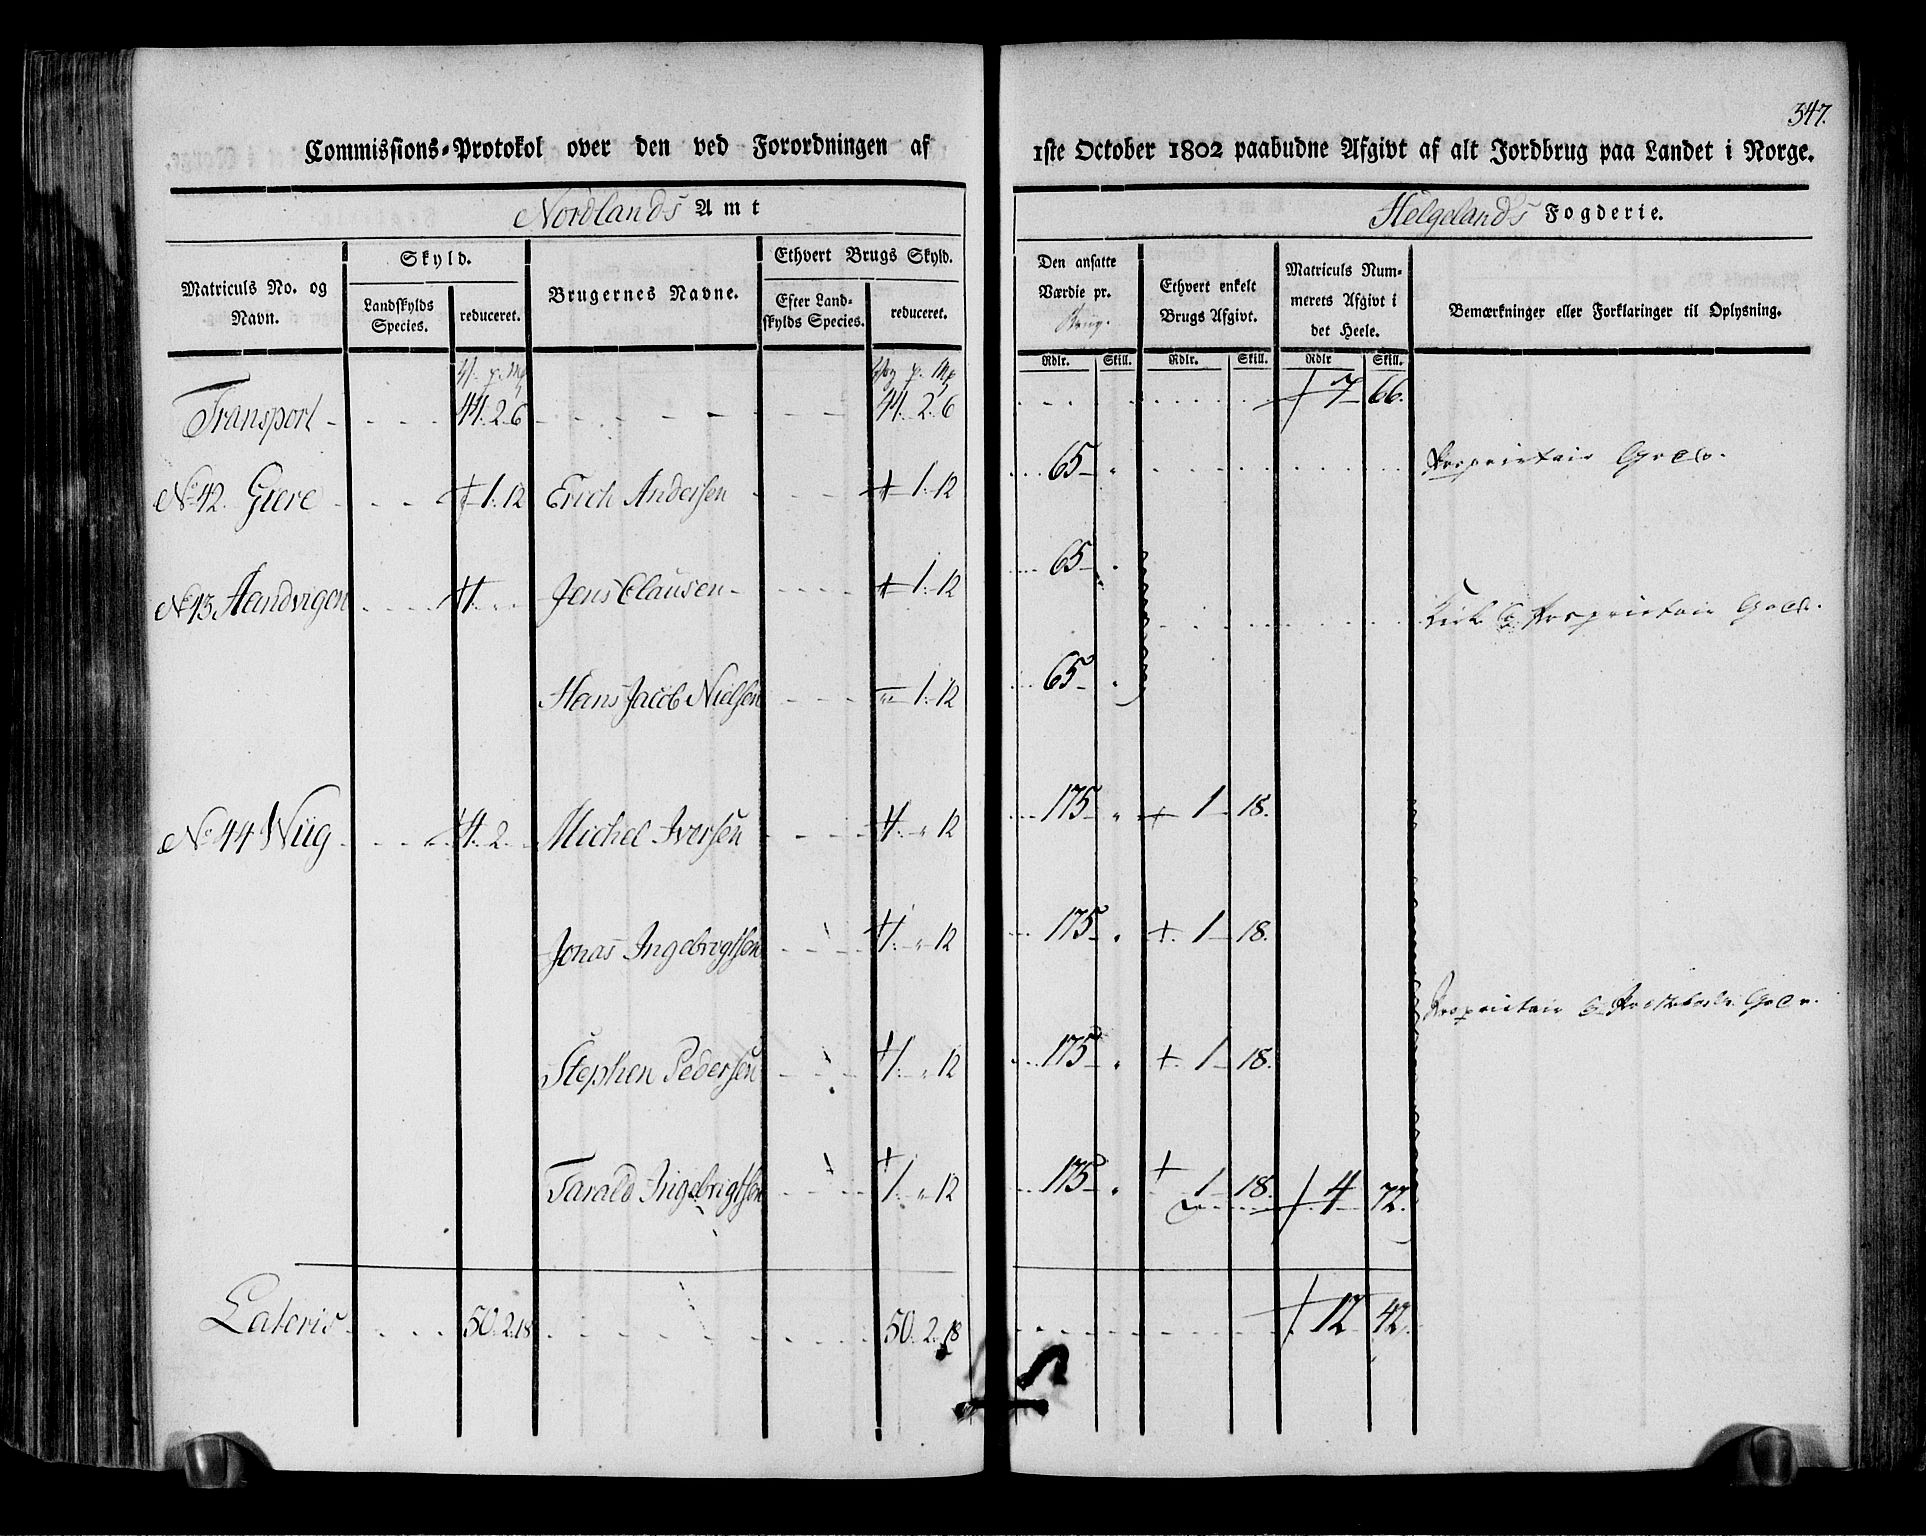 347.
Commissions-Protokol over den ved Forordningen af 1ste October 1802 paabudne Afgivt af alt Jordbrug paa Landet i Norge.
Nordlands Amt
Helgelands Fogderie.
Matriculs No. og Navn.
Skyld.
Landskylds Species.
reduceret.
Brugernes Navne.
Ethvert Brugs Skyld.
Efter Landskylds Species.
reduceret.
Den ansatte Værdie pr.
Ethvert enkelt Brugs Afgivt.
Matriculs Nummerets Afgivt i det Heele.
Bemærkninger eller Forklaringer til Oplysning.
Rdlr. Skill. Rdlr. Skill. Rdlr Skill.
Transport 44. 2. 6 44. 2. 6 7 66.
No 42. Giere 1. 12 Erich Andersen 1. 12 65 Proprietair Gods.
No 43 Aandvigen Jens Clausen 1. 12 65
Proprietair Gods.
Hans Jacob Nielsen 1. 12 65
No 44 Wiig 4. 2 Michel Iversen 1. " 12 175 " 1 18.
Jonas Ingebrigtsen 1. " 12 175 " 1 18.
Proprietair Gods.
Stephen Pedersen 1. " 12 175 " 1 18.
Tarald Ingebrigtsen 1. " 12 175 " 1 18. 4 72.
Lateris 50. 2. 18 50. 2. 18 12 42.